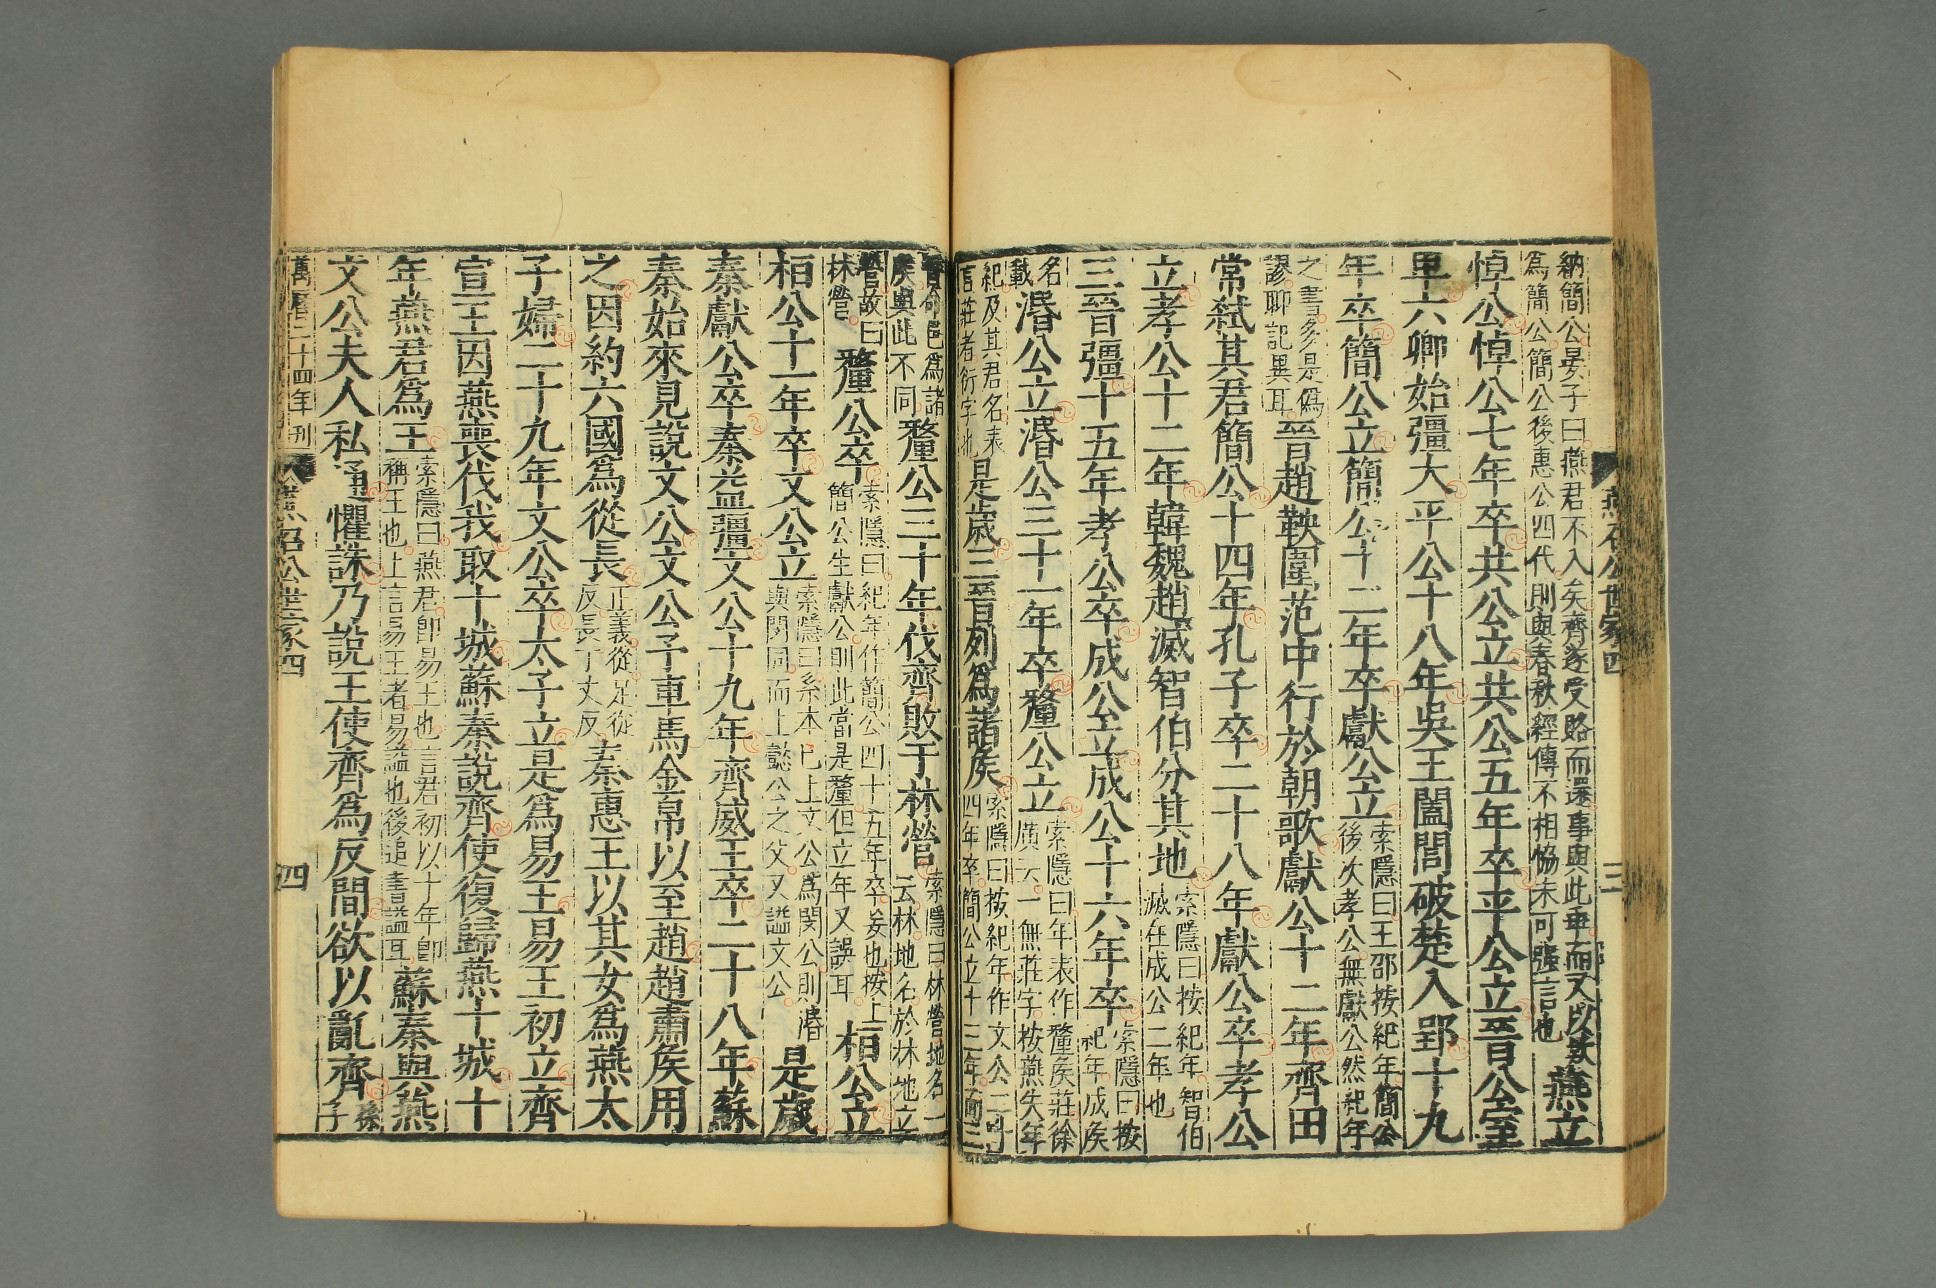 燕召公世家四 三
納簡公晏子曰燕君不入矣齊遂受賂而還事與此乖而又以款
爲簡公簡公後惠公四代則與春秋經傳不相協未可強言也
燕立
悼公悼公七年卒共公立共公五年卒平公立晉公室
卑六卿始彊大平公十八年吳王闔閭破楚入郢十九
年卒簡公立簡公十二年卒獻公立
索隱曰王邵按紀年簡公
後次孝公無獻公然紀年
之書多是僞
謬聊記異耳
晉趙鞅圍范中行於朝歌獻公十二年齊田
常弑其君簡公十四年孔子卒二十八年獻公卒孝公
立孝公十二年韓魏趙滅智伯分其地
索隱曰按紀年智伯
滅在成公二年也
三晉彊十五年孝公卒成公立成公十六年卒
索隱曰按
紀年成侯
名
載
湣公立湣公三十一年卒釐公立
索隱曰年表作釐侯莊徐
廣云一無莊字按燕失年
紀及其君名表
言莊者衍字也
是歲三晉列爲諸侯
索隱曰按紀年作文公二十
四年卒簡公立十三年而三
晉命邑爲諸
侯與此不同
釐公三十年伐齊敗于林營
索隱曰林營地名一
云林地名於林地立
營故曰
林營
釐公卒
索隱曰紀年作簡公四十五年卒妄也按上
簡公生獻公則此當是釐但立年又誤耳
桓公立
桓公十一年卒文公立
索隱曰系本已上文公爲閔公則湣
與閔同而上懿公之父又謚文公
是歲
秦獻公卒秦益彊文公十九年齊威王卒二十八年蘇
秦始來見說文公文公予車馬金帛以至趙趙肅侯用
之因約六國爲從長
正義從足從
反長丁丈反
秦惠王以其女爲燕太
子婦二十九年文公卒太子立是爲易王易王初立齊
宣王因燕喪伐我取十城蘇秦說齊使復歸燕十城十
年燕君爲王
索隱曰燕君卽易王也言君初以十年卽
稱王也上言易王者易謚也後追書謚耳
蘇秦與燕
文公夫人私通懼誅乃說王使齊爲反間欲以亂齊
孫
子
萬曆二十四年刊 燕召公世家四 四